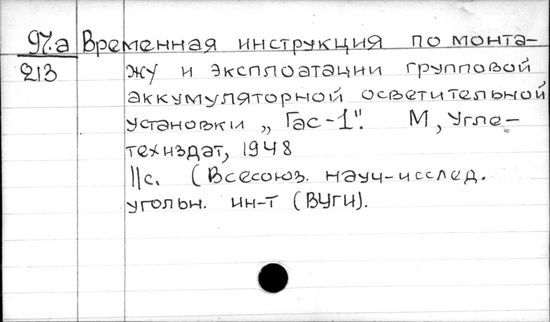 97.а Временная инструкция по монта-
213 жу и эксплоатации групповой
аккумуляторной осветительной
установки „Гас-1". М, Угле-
техиздат, 1948
11с. (Всесоюз. науч-исслед.
угольн. ин-т (ВУГИ).